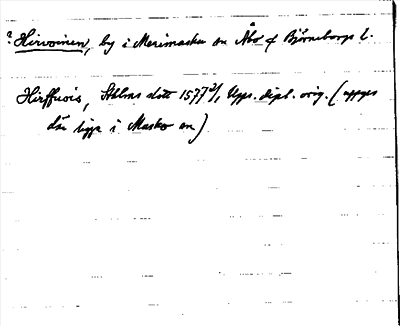 ? Hirvoinen, by i Merimasku sn Åbo & Björneborgs l.
Hirffnois, Sthlms slott 1577 2/1, Upps. dipl. orig. (uppges
där ligga i Masko sn)